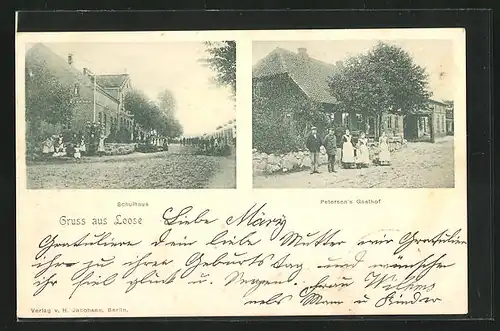 Schulhaus
Petersen's Gasthof
Gruss aus Loose
Liebe Mary
Gratuliere dein liebe Mutter wir Gratulieren
ihr zu ihren Geburtstag und wünsche
ihr fiel glück u. Segen. Frau
Mann u Kinder
Verlag v. H. Jacobsen, Berlin.